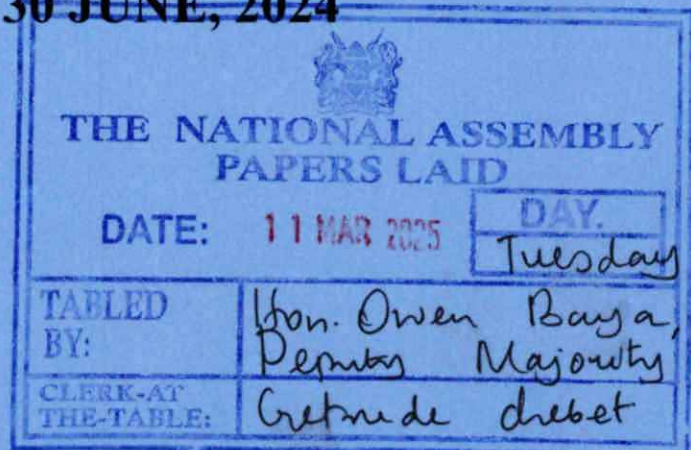 30 JUNE, 2024
THE NATIONAL ASSEMBLY
PAPERS LAID
DATE: 11 MAR 2025
DAY.
Tuesday
TABLED BY:
Hon. Owen Baya,
Deputy Majority
CLERK-AT THE-TABLE:
Gertrude chebet